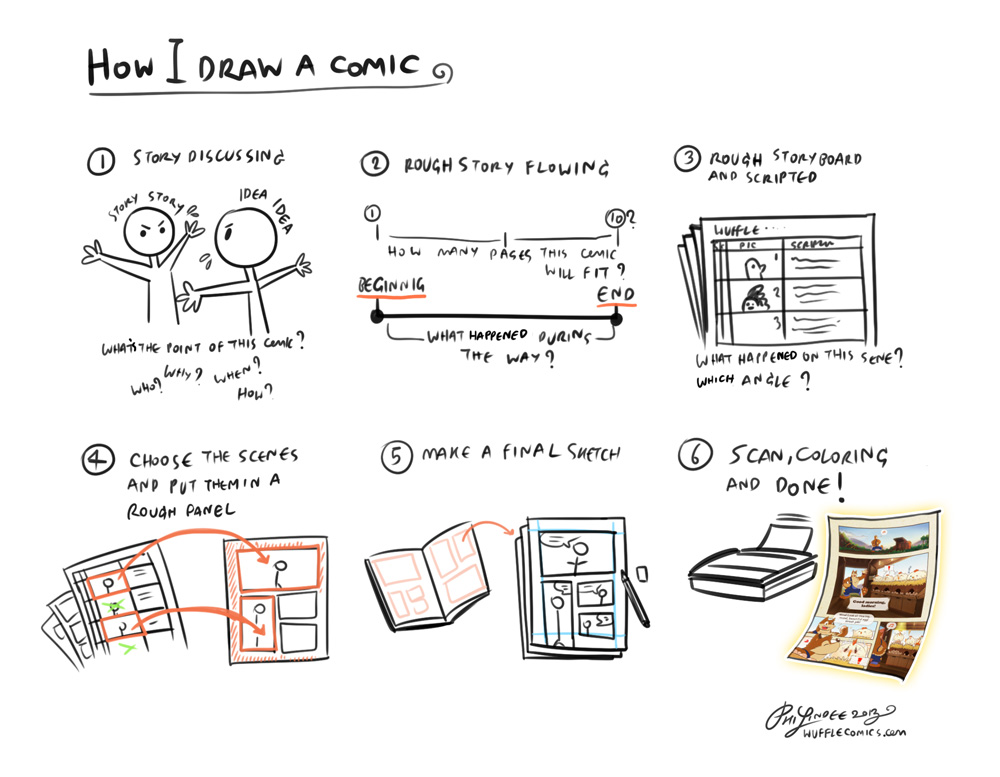 HOW I DRAW A COMIC
1 STORY DISCUSSING
STORY STORY
IDEA IDEA
WHAT'S THE POINT OF THIS COMIC?
WHY? WHEN?
WHO?
HOW?
2 ROUGH STORY FLOWING
1
10?
HOW MANY PAGES THIS COMIC
WILL FIT?
BEGINNIG
END
WHAT HAPPENED DURING
THE WAY?
3 ROUGH STORYBOARD
AND SCRIPTED
WUFFLE ....
PIC
1
2
3
WHAT HAPPENED ON THIS SENE?
WHICH ANGLE?
4 CHOOSE THE SCENES
AND PUT THEM IN A
ROUGH PANEL
5 MAKE A FINAL SKETCH
6 SCAN, COLORING
AND DONE!
Good morning,
ladies!
2013
WUFFLECOMICS.com